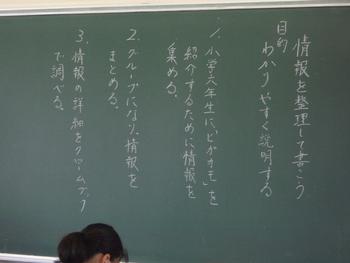 情報を整理して書こう
目的 わかりやすく説明する
1. 小学六年生に「ピカオモ」を
紹介するために情報を
集める。
2. グループになり、情報を
まとめる。
3. 情報の詳細をクロームブック
で調べる。